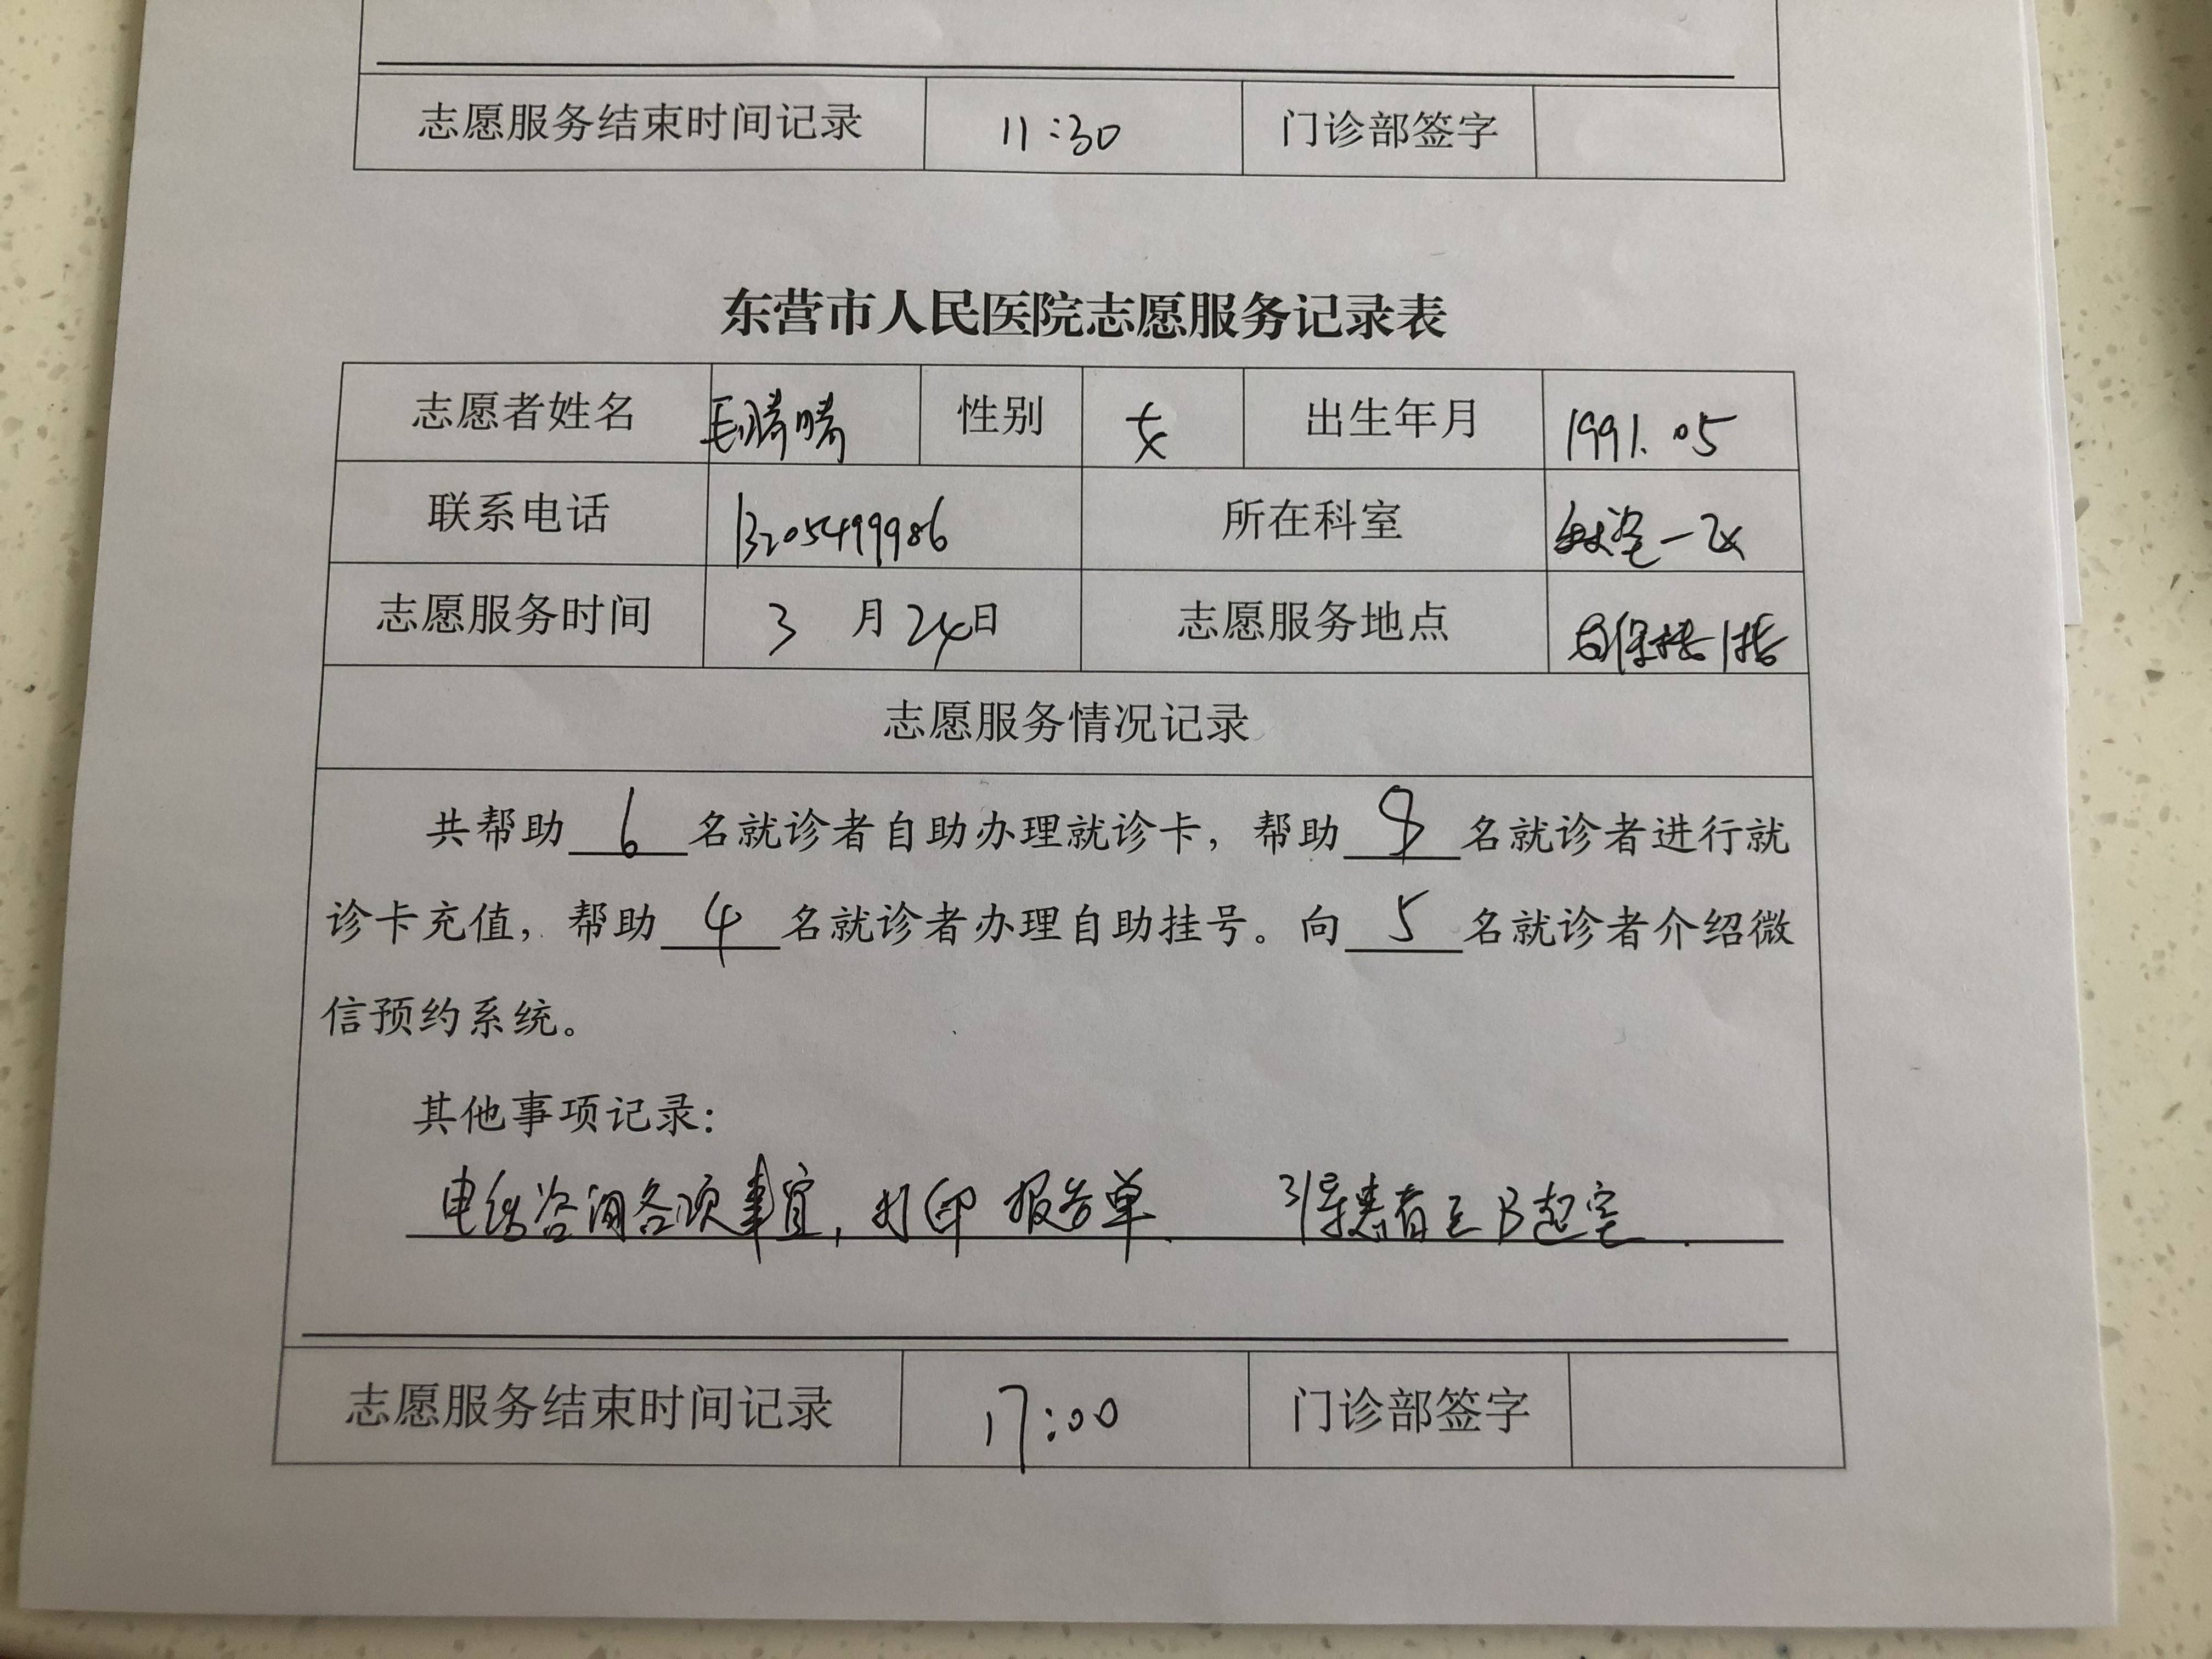 志愿服务结束时间记录 11:30 门诊部签字
东营市人民医院志愿服务记录表
志愿者姓名 性别 女 出生年月 1991.05
联系电话 13205499986 所在科室
志愿服务时间 3 月 24 日 志愿服务地点 保楼1楼
志愿服务情况记录
共帮助 6 名就诊者自助办理就诊卡，帮助 8 名就诊者进行就
诊卡充值，帮助 4 名就诊者办理自助挂号。向 5 名就诊者介绍微
信预约系统。
其他事项记录：
电话咨询各项事宜，打印报告单、 引导患者至B超室.
志愿服务结束时间记录 17:00 门诊部签字